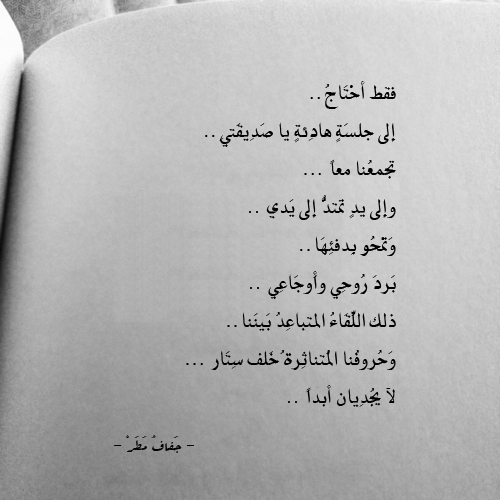 فقط أحْتَاجُ..
إلى جلسَةٍ هادِئةٍ يا صَدِيقَتي..
تجمعُنا معاً ...
وإلى يدٍ تمتدُّ إلى يَدي ..
وَتمْحُو بِدفئِهَا..
بَردَ رُوحِي وأوجَاعِي ..
ذلك اللّقَاءُ المتباعِدُ بَينَنا..
وَحُروفُنا المُتناثِرة ُخَلف سِتَار ...
لآ يجُدِيان أبداً ..
- جَفافْ مَطَرْ -